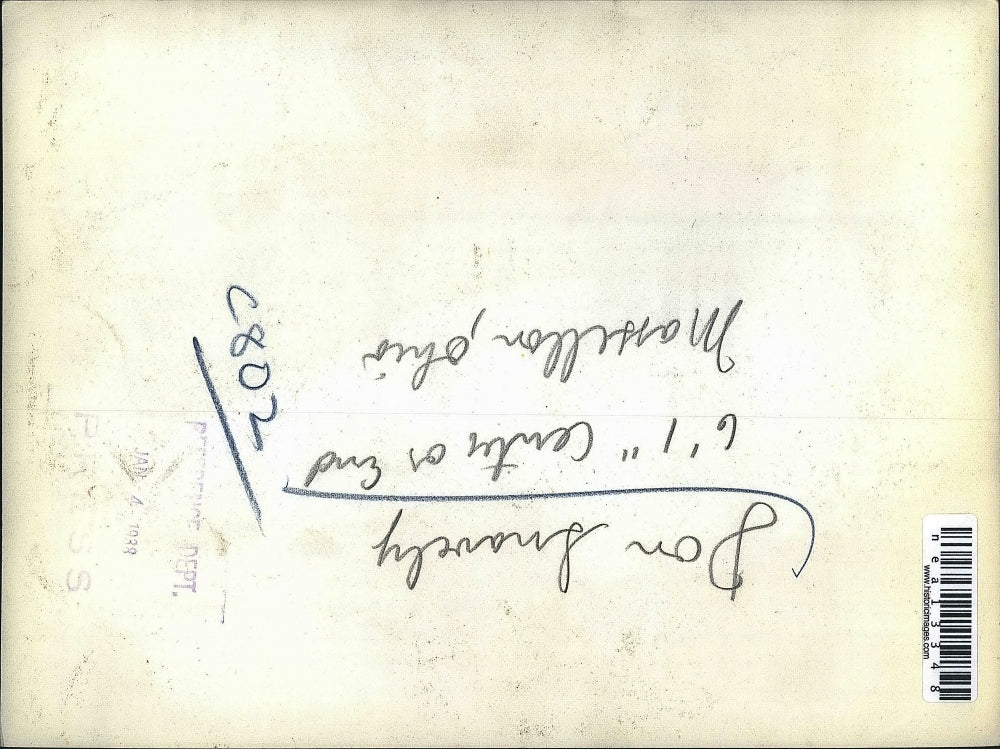 Don Snavely
6'1" Center or End
Massillon, Ohio
C802
REFERENCE DEPT.
JAN 4 1939
PRESS
nea13348
www.historicimages.com